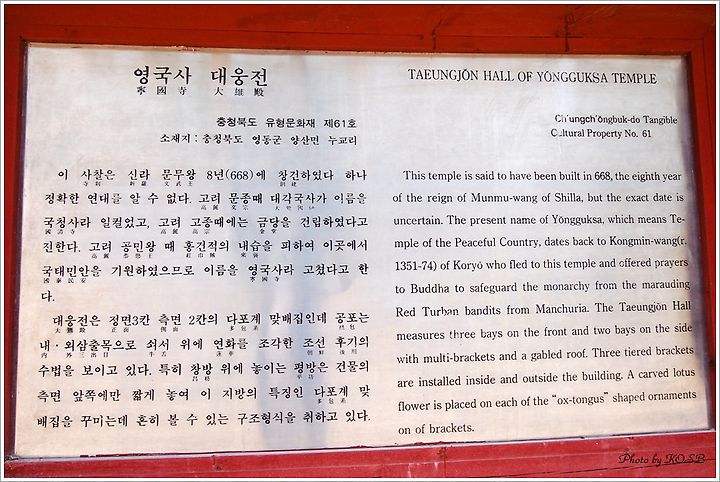 영국사 대웅전
寧國寺 大雄殿
충청북도 유형문화재 제61호
소재지 : 충청북도 영동군 양산면 누교리
이 사찰은 신라 문무왕 8년(668)에 창건하였다 하나
寺刹 新羅 文武王 創建
정확한 연대를 알 수 없다. 고려 문종때 대각국사가 이름을
高麗 文宗 大覺國師
국청사라 일컬었고, 고려 고종때에는 금당을 건립하였다고
國淸寺 高麗 高宗 金堂
전한다. 고려 공민왕 때 홍건적의 내습을 피하여 이곳에서
高麗 恭愍王 紅巾賊 來襲
국태민안을 기원하였으므로 이름을 영국사라 고쳤다고 한
國泰民安 寧國寺
다.
대웅전은 정면3칸 측면 2칸의 다포계 맞배집인데 공포는
大雄殿 正面 側面 多包系 栱包
내·외삼출목으로 쇠서 위에 연화를 조각한 조선 후기의
內 外三出目 牛舌 蓮華 朝鮮 後期
수법을 보이고 있다. 특히 창방 위에 놓이는 평방은 건물의
昌枋 平枋
측면 앞쪽에만 짧게 놓여 이 지방의 특징인 다포계 맞
多包系
배집을 꾸미는데 흔히 볼 수 있는 구조형식을 취하고 있다.
TAEUNGJŎN HALL OF YŎNGGUKSA TEMPLE
Ch'ungch'ŏngbuk-do Tangible
Cultural Property No. 61
This temple is said to have been built in 668, the eighth year
of the reign of Munmu-wang of Shilla, but the exact date is
uncertain. The present name of Yŏngguksa, which means Te-
mple of the Peaceful Country, dates back to Kongmin-wang(r.
1351-74) of Koryŏ who fled to this temple and offered prayers
to Buddha to safeguard the monarchy from the marauding
Red Turban bandits from Manchuria. The Taeungjŏn Hall
measures three bays on the front and two bays on the side
with multi-brackets and a gabled roof. Three tiered brackets
are installed inside and outside the building. A carved lotus
flower is placed on each of the "ox-tongus" shaped ornaments
on of brackets.
Photo by KOSB